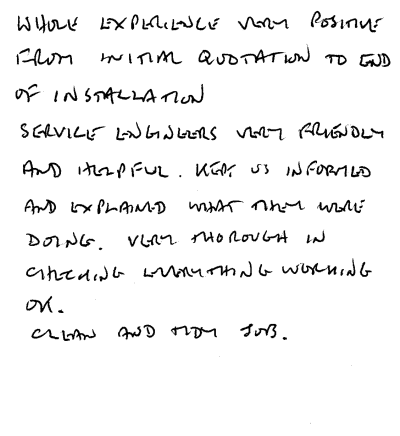 WHOLE EXPERIENCE VERY POSITIVE
FROM INITIAL QUOTATION TO END
OF INSTALLATION
SERVICE ENGINEERS VERY FRIENDLY
AND HELPFUL. KEPT US INFORMED
AND EXPLAINED WHAT THEY WERE
DOING. VERY THOROUGH IN
CHECKING EVERYTHING WORKING
OK.
CLEAN AND TIDY JOB.